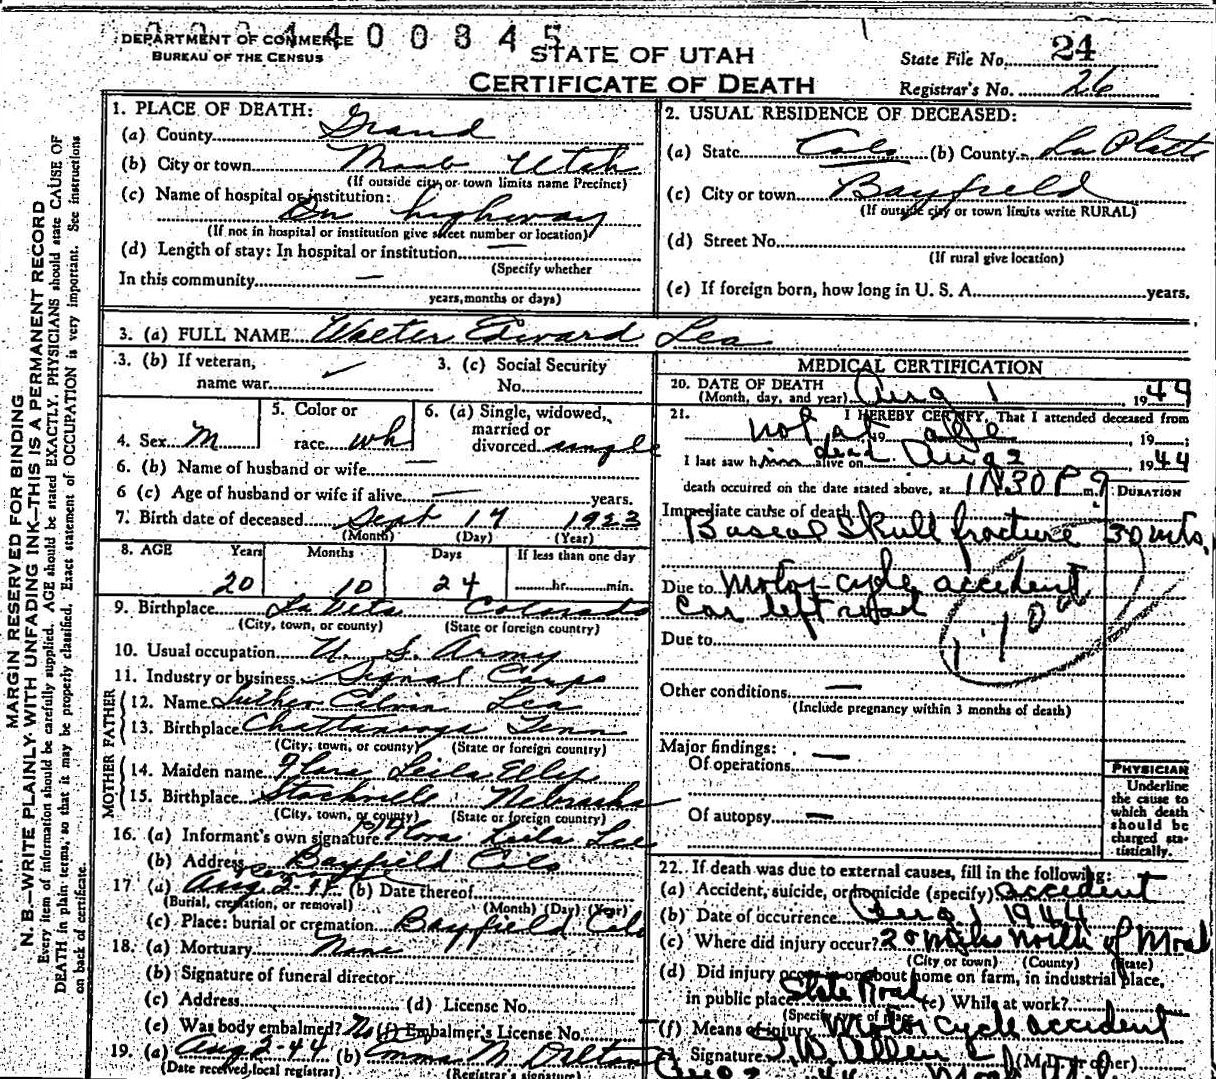 DEPARTMENT OF COMMERCE
BUREAU OF THE CENSUS
4 0 0 8 4 5
STATE OF UTAH
CERTIFICATE OF DEATH
State File No. 24
Registrar's No. 26
MARGIN RESERVED FOR BINDING
N. B.—WRITE PLAINLY WITH UNFADING INK—THIS IS A PERMANENT RECORD
Every item of information should be carefully supplied. AGE should be stated EXACTLY. PHYSICIANS should state CAUSE OF
DEATH in plain terms, so that it may be properly classified. Exact statement of OCCUPATION is very important. See instructions
on back of certificate.
1. PLACE OF DEATH:
(a) County Grand
(b) City or town Moab Utah
(If outside city or town limits name Precinct)
(c) Name of hospital or institution:
On highway
(If not in hospital or institution give street number or location)
(d) Length of stay: In hospital or institution —
(Specify whether
In this community —
years, months or days)
2. USUAL RESIDENCE OF DECEASED:
(a) State Colo (b) County La Platta
(c) City or town Bayfield
(If outside city or town limits write RURAL)
(d) Street No.
(If rural give location)
(e) If foreign born, how long in U. S. A. years.
3. (a) FULL NAME Walter Edward Lea
3. (b) If veteran,
name war
3. (c) Social Security
No.
4. Sex M
5. Color or
race wh
6. (a) Single, widowed,
married or
divorced single
6. (b) Name of husband or wife —
6 (c) Age of husband or wife if alive — years.
7. Birth date of deceased Sept 17 1923
(Month) (Day) (Year)
8. AGE Years Months Days If less than one day
20 10 24 hr. min.
9. Birthplace La Veta Colorado
(City, town, or county) (State or foreign country)
10. Usual occupation U. S. Army
11. Industry or business Signal Corps
FATHER
12. Name Luther Calvin Lea
13. Birthplace Chattanooga Tenn
(City, town, or county) (State or foreign country)
MOTHER
14. Maiden name Flora Leila Ellis
15. Birthplace Stockville Nebraska
(City, town, or county) (State or foreign country)
16. (a) Informant's own signature Flora Leila Lea
(b) Address Bayfield Colo
17 (a) Aug 2-44 (b) Date thereof
(Burial, cremation, or removal) (Month) (Day) (Year)
(c) Place: burial or cremation Bayfield Colo
18. (a) Mortuary None
(b) Signature of funeral director
(c) Address (d) License No.
(e) Was body embalmed? No (f) Embalmer's License No.
19. (a) Aug 2-44 (b) Emma M. Dalton
(Date received local registrar) (Registrar's signature)
MEDICAL CERTIFICATION
20. DATE OF DEATH
(Month, day, and year) Aug 1, 1944
21. I HEREBY CERTIFY, That I attended deceased from
not at all 19 , 19 ;
I last saw him dead alive on Aug 2 1944
death occurred on the date stated above, at 11:30 P m. ?
DURATION
Immediate cause of death
Baseal Skull fracture 30 mts.
Due to Motor cycle accident
car left road
Due to
170 d
Other conditions —
(Include pregnancy within 3 months of death)
Major findings:
Of operations —
Of autopsy —
PHYSICIAN
Underline
the cause to
which death
should be
charged sta-
tistically.
22. If death was due to external causes, fill in the following:
(a) Accident, suicide, or homicide (specify) accident
(b) Date of occurrence Aug 1 1944
(c) Where did injury occur? 20 miles North of Moab
(City or town) (County) (State)
(d) Did injury occur in or about home on farm, in industrial place,
in public place? State Road (e) While at work?
(Specify type of place)
(f) Means of injury Motor cycle accident
Signature J. W. Allen (M.D. or other)
Aug 2 44 Moab Ut